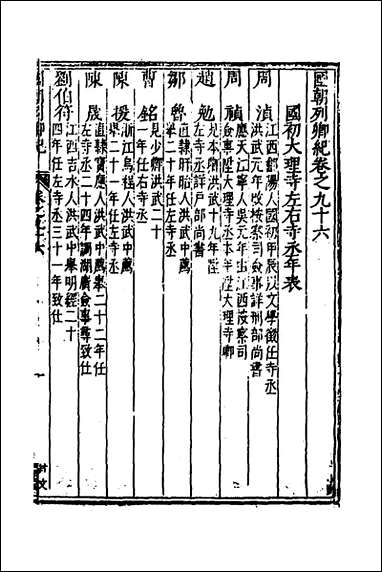 國朝列卿紀卷之九十六
國初大理寺左右寺丞年表
周湞
江西鄱陽人國初甲辰以文學徵任寺丞
洪武元年改按察司僉事詳刑部尚書
周禎
應天江寧人吳元年由江西按察司
僉事陞大理寺丞本年陞大理寺卿
趙勉
見本卿洪武十九年陞
左寺丞詳戶部尚書
鄒魯
直隸盱眙人洪武中薦
舉二十年任左寺丞
曹銘
見少卿洪武二十
一年任右寺丞
陳援
浙江烏程人洪武中薦
舉二十一年任左寺丞
陳晟
直隸寶應人洪武中薦舉二十二年任
左寺丞二十四年調湖廣僉事尋致仕
劉伯符
江西吉水人洪武中舉明經二十
四年任左寺丞三十一年致仕
國朝列卿紀